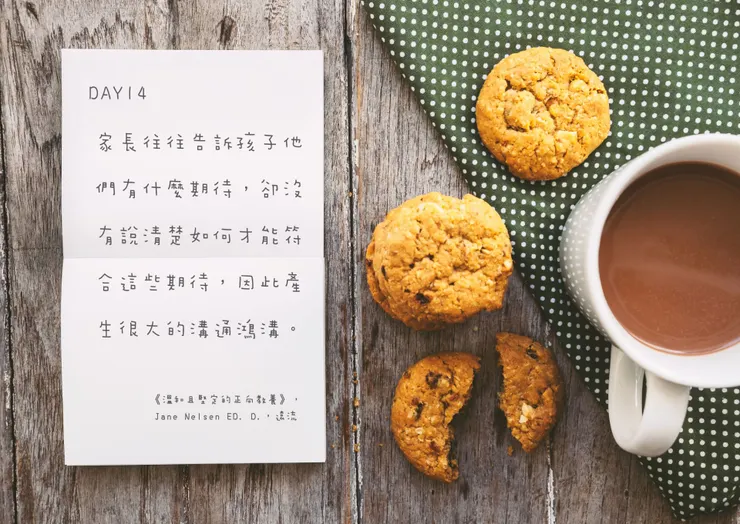 DAY14
家長往往告訴孩子他
們有什麼期待，卻沒
有說清楚如何才能符
合這些期待，因此產
生很大的溝通鴻溝。
《溫和且堅定的正向教養》，
Jane Nelsen ED. D.，遠流